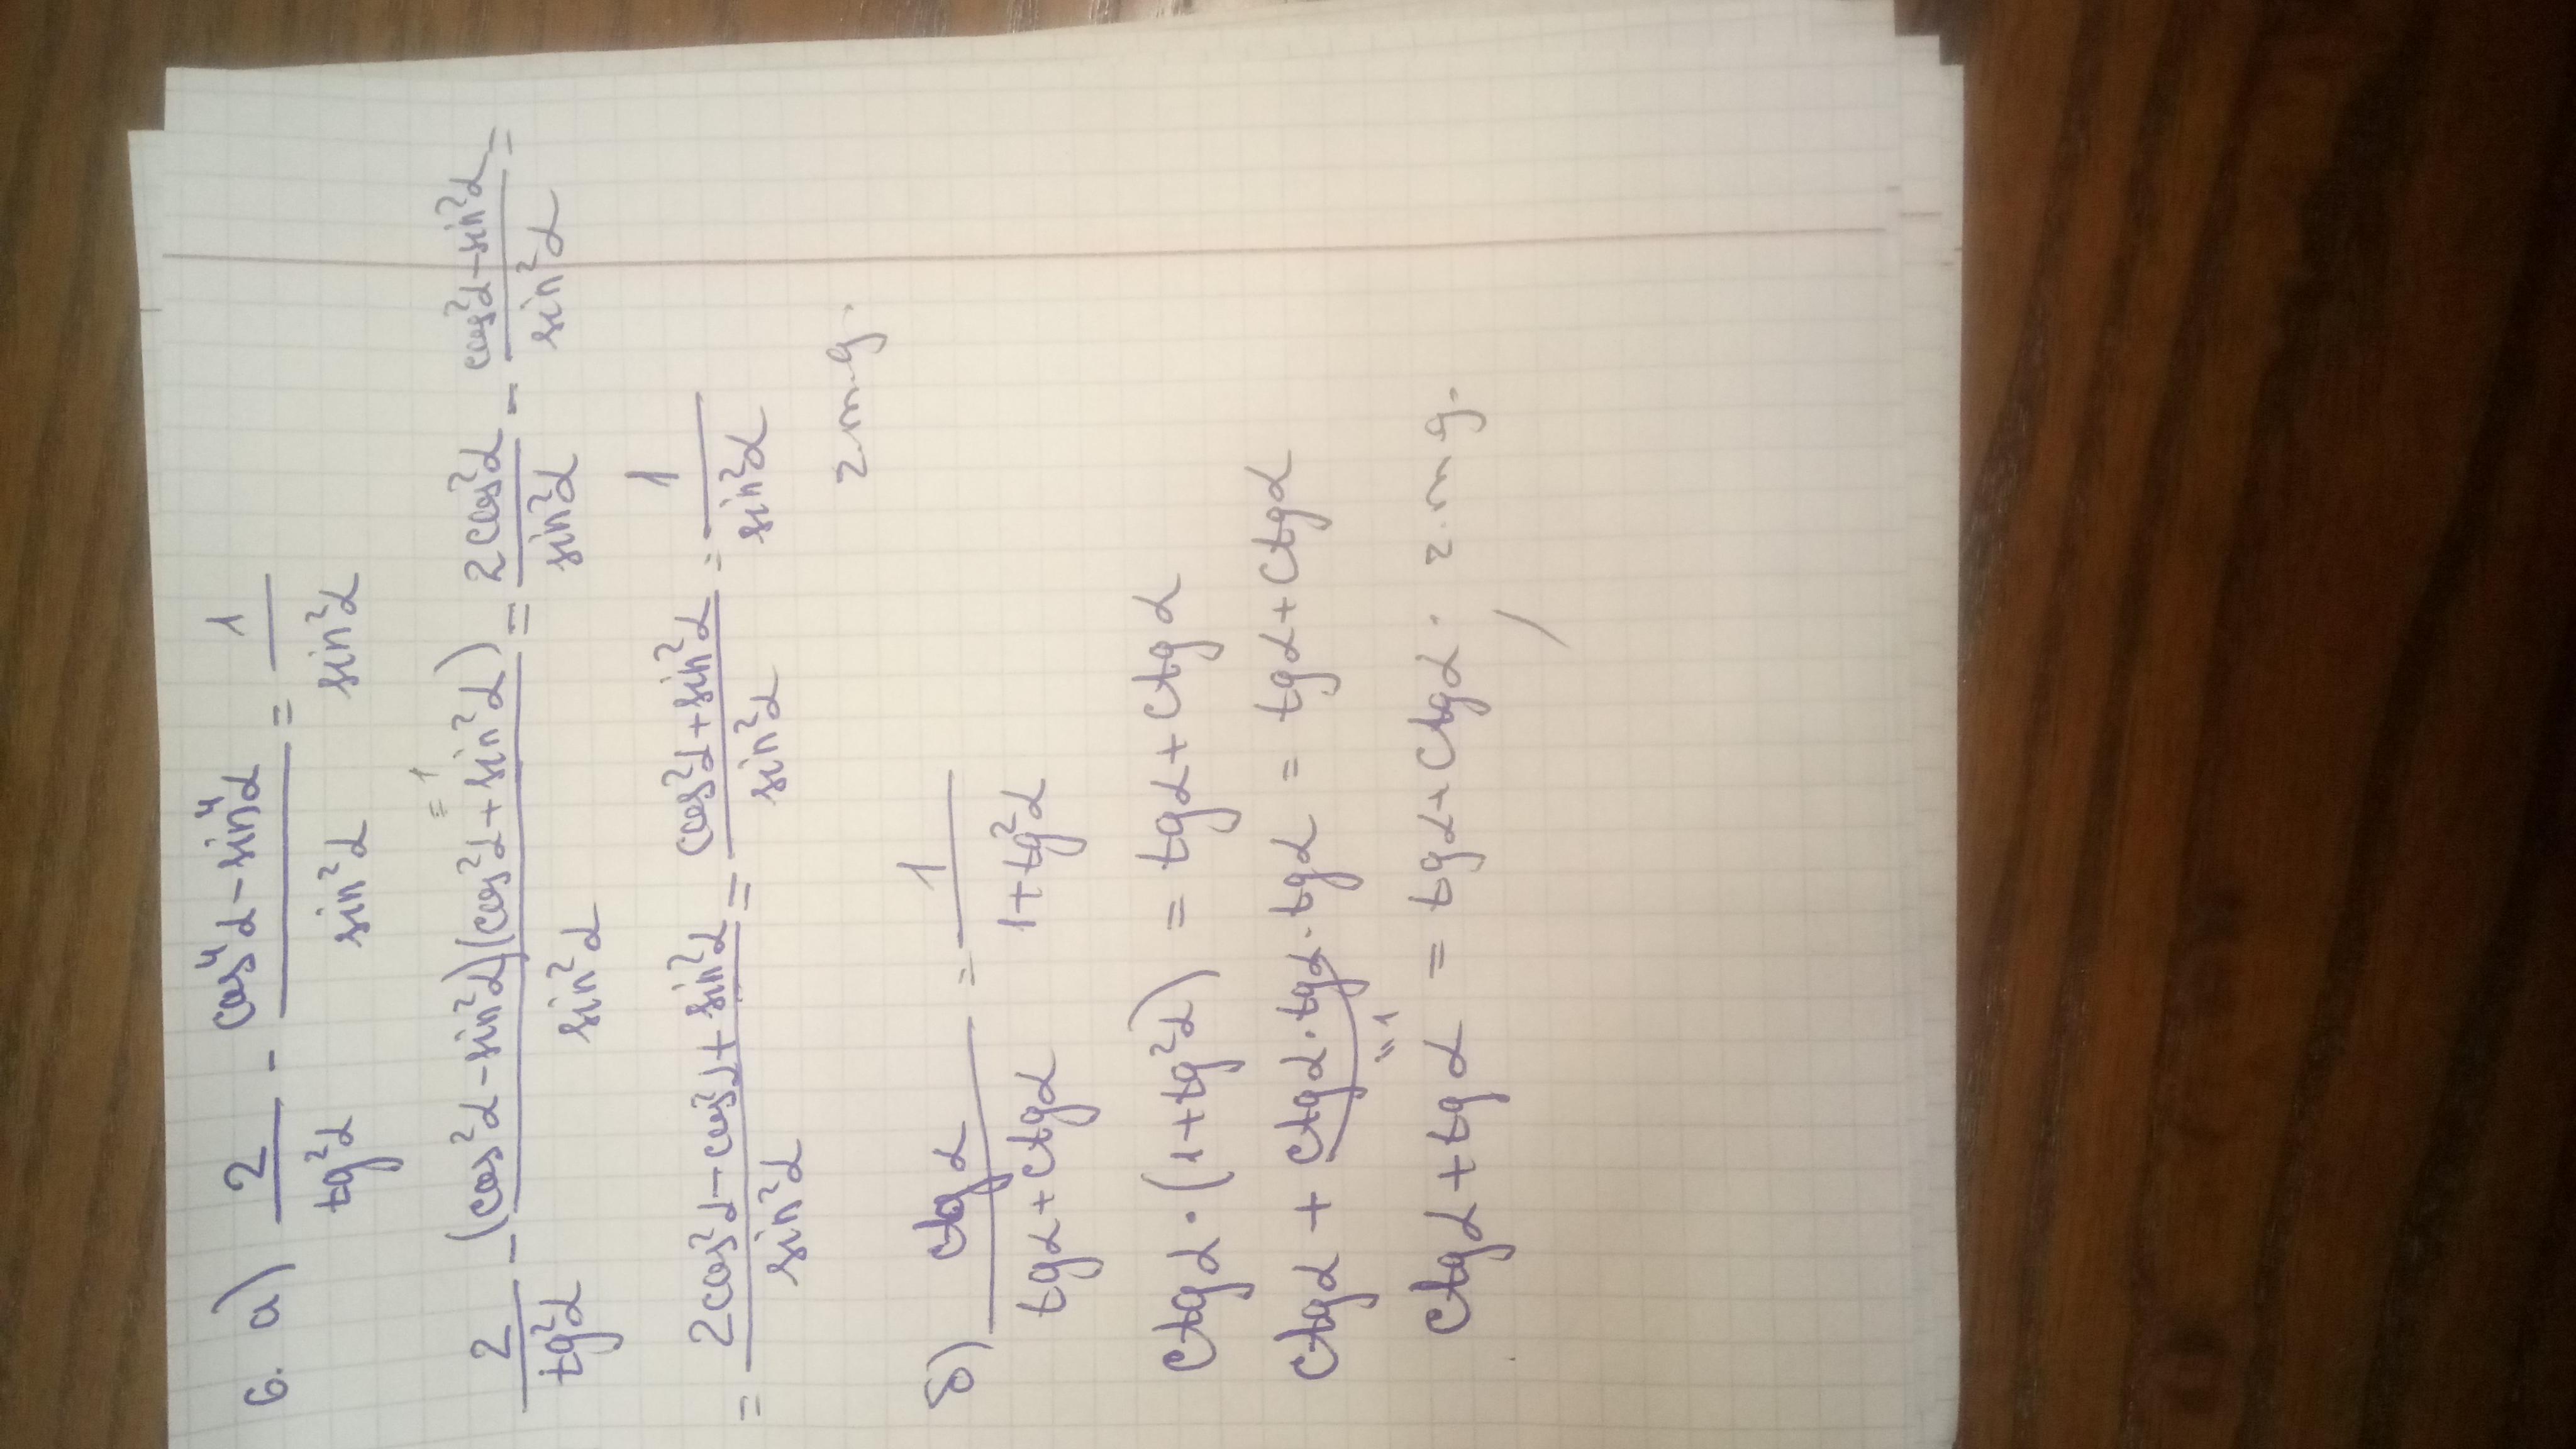 6. а) 2/tg²α - (cos⁴α - sin⁴α)/sin²α = 1/sin²α
2/tg²α - (cos²α - sin²α)(cos²α + sin²α)/sin²α = 2cos²α/sin²α - (cos²α - sin²α)/sin²α =
= 1
= (2cos²α - cos²α + sin²α)/sin²α = (cos²α + sin²α)/sin²α = 1/sin²α
z.m.g.
б) ctgα/(tgα + ctgα) = 1/(1 + tg²α)
ctgα · (1 + tg²α) = tgα + ctgα
ctgα + ctgα · tgα · tgα = tgα + ctgα
"1
ctgα + tgα = tgα + ctgα. z.m.g.